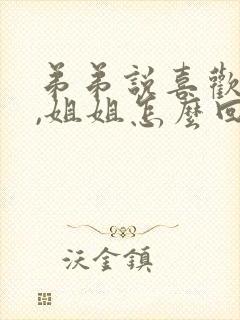 弟弟說喜歡
,姐姐怎麼回
沃金鎮